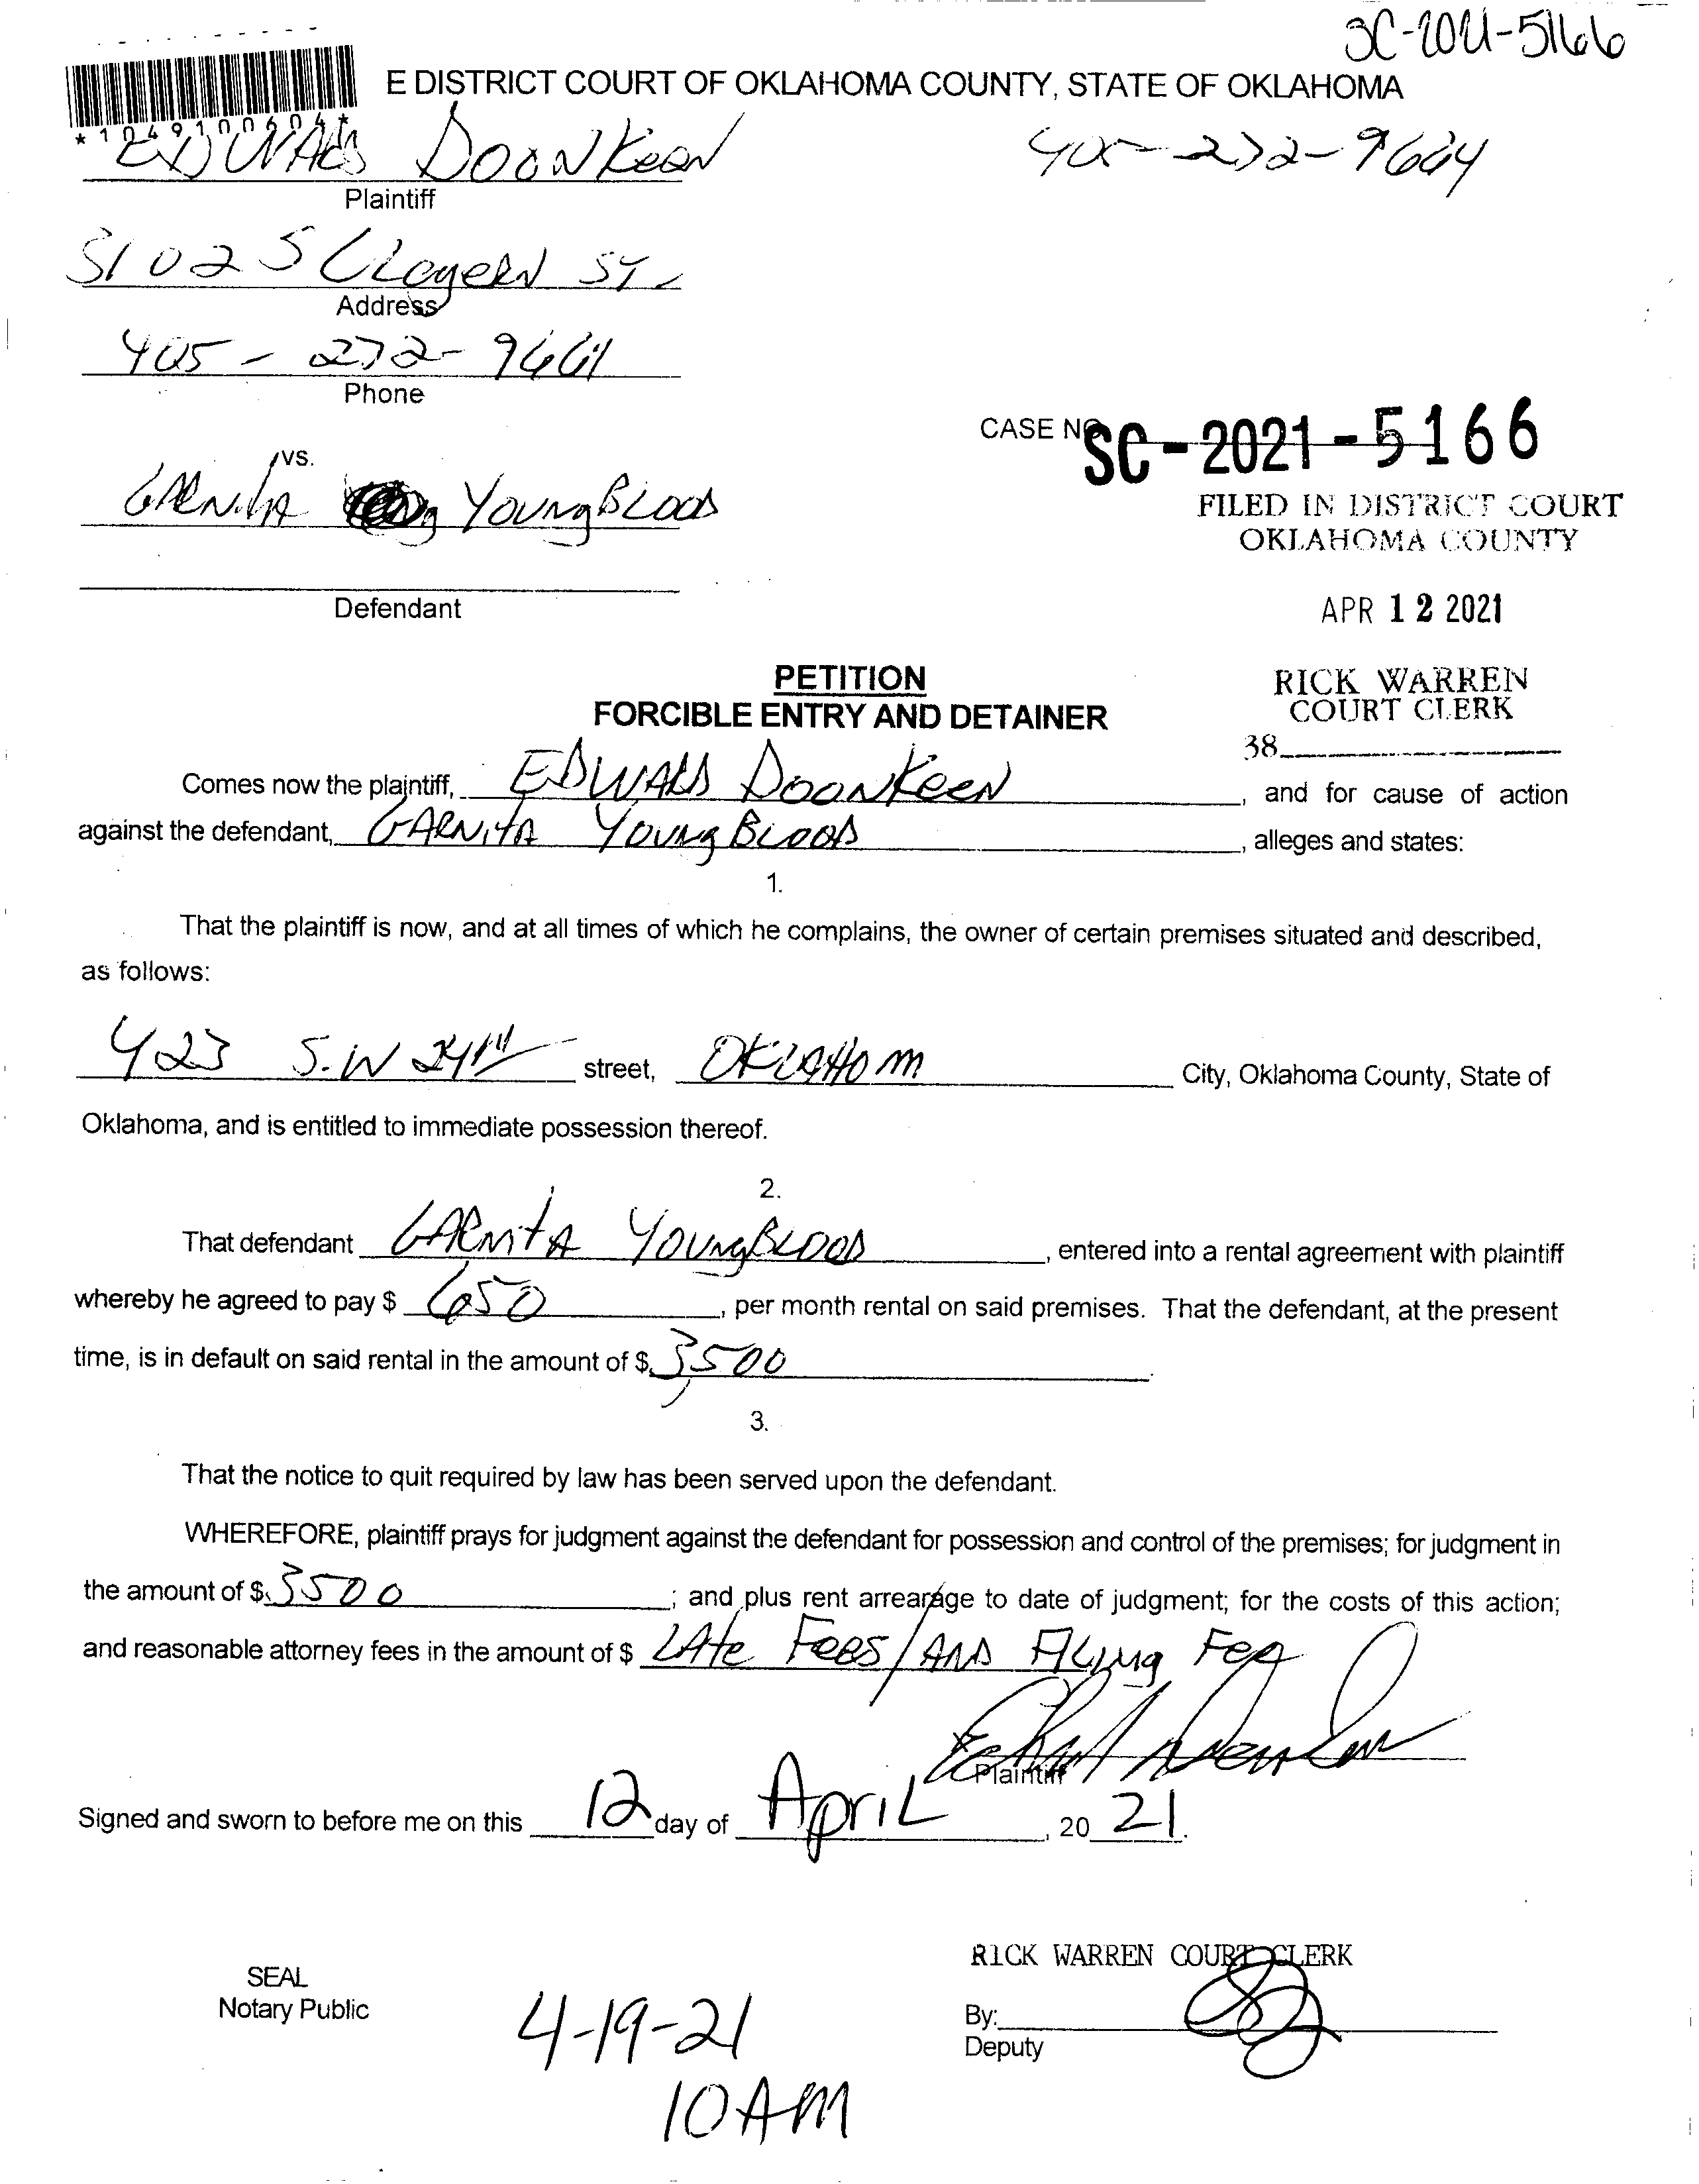 SC-2021-5166
E DISTRICT COURT OF OKLAHOMA COUNTY, STATE OF OKLAHOMA
*1049100604*
EDWARD DOONKEEN 405-272-9664
Plaintiff
3102 S ST.
Address
405-272-9661
Phone
CASE NO. SC-2021-5166
vs.
GARNITA YOUNGBLOOD
FILED IN DISTRICT COURT
OKLAHOMA COUNTY
Defendant
APR 12 2021
PETITION
FORCIBLE ENTRY AND DETAINER
RICK WARREN
COURT CLERK
38
Comes now the plaintiff, EDWARD DOONKEEN, and for cause of action
against the defendant, GARNITA YOUNGBLOOD, alleges and states:
1.
That the plaintiff is now, and at all times of which he complains, the owner of certain premises situated and described,
as follows:
423 S.W 24TH street, OKLAHOM City, Oklahoma County, State of
Oklahoma, and is entitled to immediate possession thereof.
2.
That defendant GARNITA YOUNGBLOOD, entered into a rental agreement with plaintiff
whereby he agreed to pay $ 650, per month rental on said premises. That the defendant, at the present
time, is in default on said rental in the amount of $ 3500.
3.
That the notice to quit required by law has been served upon the defendant.
WHEREFORE, plaintiff prays for judgment against the defendant for possession and control of the premises; for judgment in
the amount of $ 3500; and plus rent arrearage to date of judgment; for the costs of this action;
and reasonable attorney fees in the amount of $ LATE FEES/AND FILING FEE
Plaintiff
Signed and sworn to before me on this 12 day of APRIL, 20 21.
RICK WARREN COURT CLERK
SEAL
Notary Public
By:
Deputy
4-19-21
10 AM